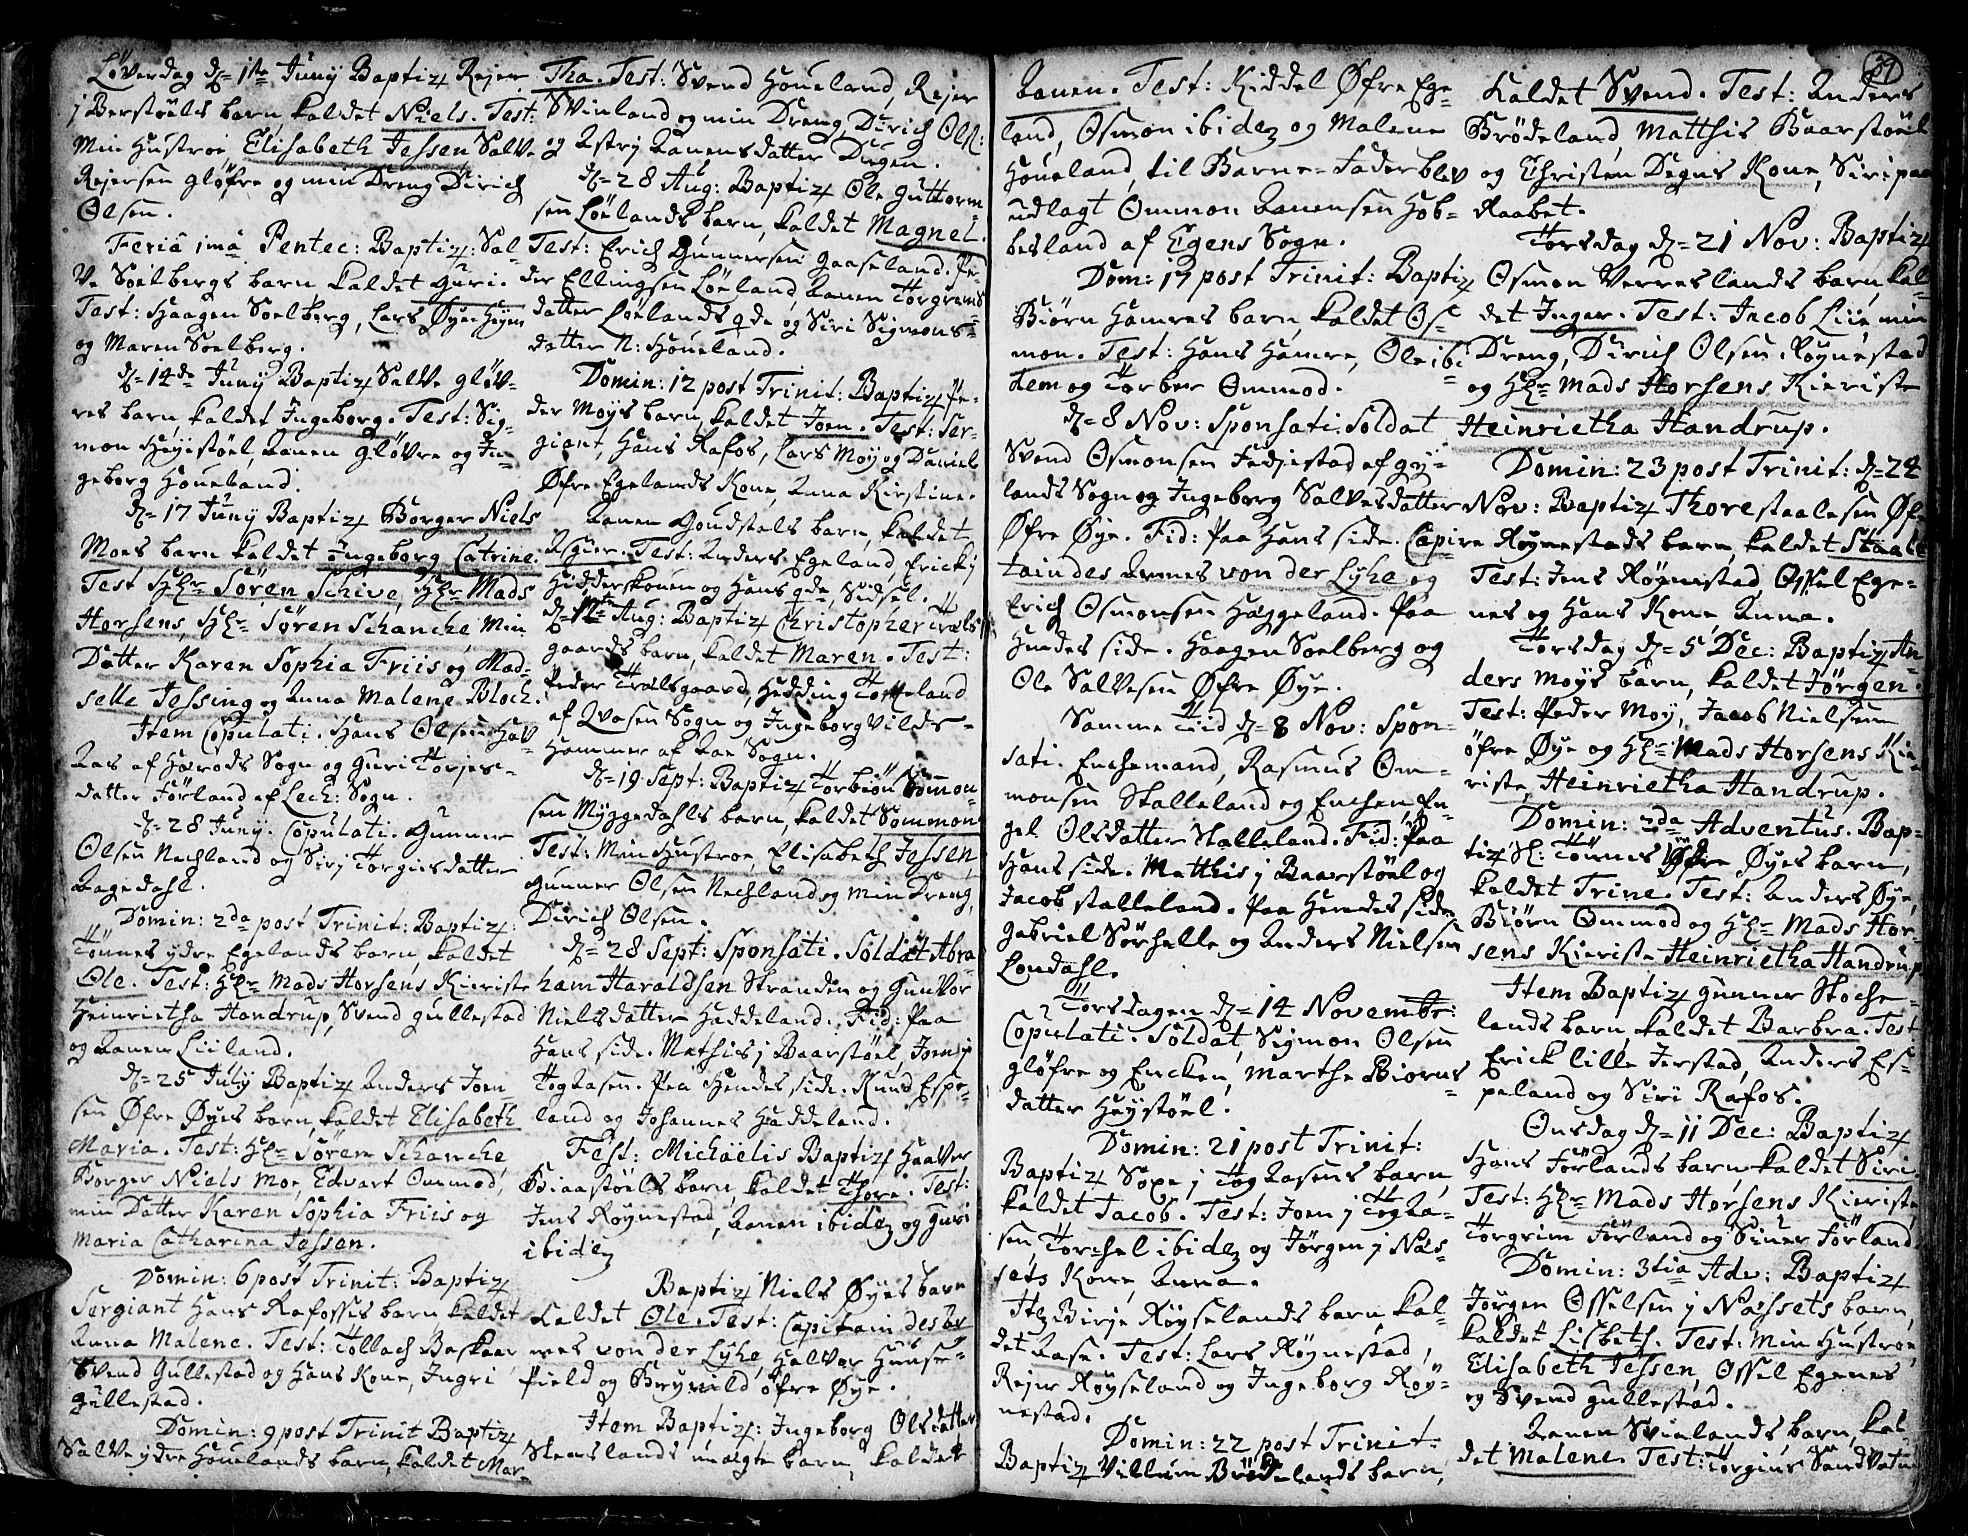 Löverdag d= 1ste Juny Baptiz Rejer
j Berstöels barn, kaldet Niels. Test:
Min Hustroe Elisabeth Jessen Salve
Rejersen Gløfre og min Dreng Dirich
Olsen.
Feriâ 1mâ Pentec: Baptiz: Sal-
ve Soelbergs barn kaldet Guri.
Test: Haagen Soelberg, Lars Øye Heÿm
og Maren Soelberg.
d= 14de Juny Baptiz Salve Gløv-
res barn, kaldet Ingeborg. Test: Sig-
mon Heyestöel, Aanen Gløvre og In-
geborg Houeland.
d= 17 Juny Baptiz Borger Niels
Moes barn kaldet Ingeborg Catrine.
Test Hr: Sören Schive, Hr: Mads
Horsens, Hr: Sören Schanche, Min
Datter Karen Sophia Friis og Mad-
selle Jessing og Anna Malene Bloch.
Item Copulati. Hans Olsen Hav-
aas af Hærods Sogn og Guri Torjes-
datter Förland af Lech: Sogn.
d= 28 Juny. Copulati. Gunner
Olsen Nechland og Sirj Törgiersdatter
Aagedahl.
Domin: 2da post Trinit: Baptiz:
Tönnes ydre Egelands barn, kaldet
Ole. Test: Hr: Mads Horsens Kieriste
Heinrietha Handrup, Svend Gullestad
og Aanen Liiland.
d= 25 July Baptiz Anders Joen
sen Øfre Øyes barn, kaldet Elisabeth
Maria. Test: Hr: Sören Schanche
Borger Niels Moe, Edvart Ommod,
min Datter Karen Sophia Friis og
Maria Catharina Jessen.
Domin: 6 post Trinit: Baptiz
Sergiant Hans Rafosses barn, kaldet
Anna Malene. Test: Tollach Baskaar
Svend Gullestad og Hans Kone, Ingri
Gullestad.
Domin: 9 post Trinit Baptiz
Salve ydre Houelands barn, kaldet Mar-
tha. Test: Svend Houeland, Rejer
Svinland og min Dreng, Dirich Ols:
og Astrj Aanensdatter Dugen.
d= 28 Aug: Baptiz Ole Guttorm-
sen Löelands barn, kaldet Magnel.
Test: Erich Gunnersen Gaaseland. Pe-
der Ellingsen Löeland, Aanen Torgrims
datter Löelands qde og Siri Sigmons-
datter N: Houeland.
Domin: 12 post Trinit: Baptiz Pe-
der Moys barn, kaldet Joen. Test: Ser-
giant, Hans Rafos, Lars Moy og Daniel
Øfre Egelands Kone, Anna Kirstine.
Aanen Gondstals barn, kaldet
Asgier. Test: Anders Egeland, Erick j
Hidderskouen og Hans qde, Sidsel.
Aug: Baptiz Christopher Træls-
gaards barn, kaldet Maren. Test:
Peder Trælsgaard, Hedding Tofteland
af Qvasen Sogn og Ingeborg Vilds-
Hammer af Aae Sogn.
d= 19 Sept: Baptiz Torbiön Sömon-
sen Myggedahls barn, kaldet Sommon.
Test: Min Hustroe, Elisabeth Jessen,
Gunner Olsen Nechland og min Dreng,
Dirich Olsen.
d= 28 Sept: Sponsati. Soldat Abra-
ham Haraldsen Stranden og Gunvor
Nielsdatter Haddeland. Fid: Paa
Hans side. Mathis j Baarstöel, Joen j
Togaasen. Paa Hendes side. Knud Espe-
land og Johannes Haddeland.
Fest: Michaëlis Baptiz Haaver
Biaastöels barn, kaldet Thore. Test:
Jens Röynestad, Aanen ibidem og Guri
ibidem
Baptiz Niels Øyes barn
kaldet Ole. Test: Capitain des ar
mes von der Lyhe, Halvor Hunse-
Field og Brynild Øfre Øye.
Item Baptiz: Ingeborg Olsdatter
Stemslands uægte barn, kaldet
39
Aanen. Test: Kiddel Øfre Ege-
land, Osmon ibidem og Malene
Houeland, til Barne-Fader blev
udlagt Ommon Aanensen Hob-
besland af Egens Sogn.
Dom: 17 post Trinit: Baptiz
Biörn Hamres barn, kaldet Os-
mon. Test: Hans Hamre, Ole ibi-
dem og Torber Ommod.
d= 8 Nov: Sponsati. Soldat
Svend Osmonsen Fedjestad af Gy-
lands Sogn og Ingeborg Salvesdatter
Øfre Øye. Fid: Paa Hans side. Capi-
tain des Armes von der Lyhe og
Erich Osmonsen Haggeland. Paa
Hendes side. Haagen Soelberg og
Ole Salvesen Øfre Øye.
Samme Tiid d= 8 Nov: Spon-
sati. Enchemand, Rasmus Om-
monsen Stalleland og Enchen, En-
gel Olsdatter Stalleland. Fid: Paa
Hans side. Matthis j Baarstöel og
Jacob Stalleland. Paa Hendes side
Gabriel Sörhelle og Anders Nielsen
Londahl.
Torsdagen d= 14 Novembr:
Copulati. Soldat, Sigmon Olsen
Gløfre og Encken, Marthe Biorns
datter Heystöel.
Domin: 21 post Trinit:
Baptiz Soxe j Togaasens barn,
kaldet Jacob. Test: Joen j Togaa-
sen, Torchel ibidem og Jörgen j Næs-
sets Kone, Anna.
Item Birje Röyselands barn, kal-
det Aase. Test: Lars Röynestad,
Rejer Röyseland og Ingeborg Röy-
nestad.
Domin: 22 post Trinit:
Baptiz Villum Brödelands barn,
kaldet Svend. Test: Anders
Brödeland, Matthis Baarstöel
og Christen Degns Kone, Siri paa
Raabet.
Torsdag d= 21 Nov: Baptiz
Osmon Verreslands barn, kal-
det Inger. Test: Jacob Liie min
Dreng, Dirich Olsen. Röynestad
og Hr: Mads Horsens Kieriste
Heinrietha Handrup.
Domin: 23 post Trinit: d= 24
Nov: Baptiz Thore Staalesen Øf-
re Röynestads barn, kaldet Staale
Test: Jens Röynestad Ossel Ege-
nes og Hans Kone Anna.
Torsdag d= 5 Dec: Baptiz An
ders Moys barn, kaldet Jörgen.
Test: Peder Moy, Jacob Nielsen
Øfre Øye og Hr: Mads Horsens Kie-
riste, Heinrietha Handrup.
Domin: 2da Adventûs. Bap-
tiz Sl: Tönnes Øfre Øyes barn,
kaldet Trine. Test: Anders Øye,
Biörn Ommod og Hr: Mads Hor-
sens Kieriste Heinrietha Handrup
Item Baptiz Gunner Stoche-
lands barn, kaldet Barbra. Test:
Erick lille Jerstad, Anders Es-
peland og Siri Rafos.
Onsdag d= 11 Dec: Baptiz
Hans Förlands barn, kaldet Siri.
Test: Hr: Mads Horsens Kieriste,
Torgrim Förland og Siner Förland.
Domin: 3tia Adv: Baptiz
Jörgen Osselsen j Næssets barn,
kaldet Lisbeth. Test: Min Hustroe,
Elisabeth Jessen, Ossel Egenes
og Svend Gullestad.
Aanen Svinlands barn, kal-
det Malene. Test: Törgius Sandvatn